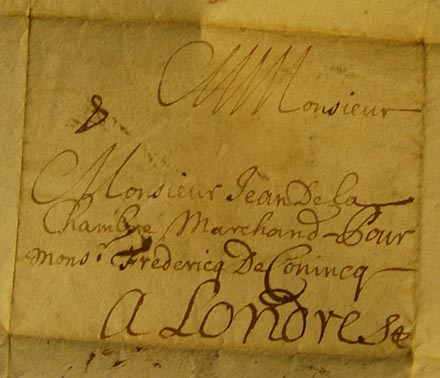 Monsieur
Monsieur Jean De La
Chambre Marchand Pour
mons.r Fredericq De Conincq
A Londres